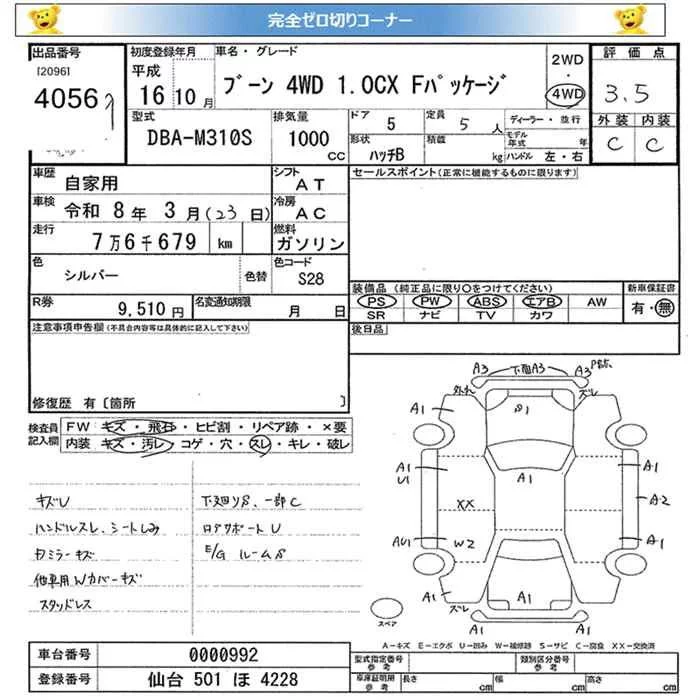 完全ゼロ切りコーナー
出品番号
[2096]
4056
初度登録年月
平成
16 10月
車名・グレード
ブーン 4WD 1.0CX Fパッケージ
2WD
・
4WD
評価点
3.5
外装 内装
C C
型式
DBA-M310S
排気量
1000
CC
ドア 5
定員 5 人
ディーラー・並行
形状 ハッチB
積載 kg
モデル年式 年
ハンドル 左・右
車歴
自家用
シフト
AT
セールスポイント(正常に機能するものに限ります)
車検
令和 8年 3月(23日)
冷房
AC
走行
7万6千679 km
燃料
ガソリン
色
シルバー
色替
色コード
S28
装備品(純正品に限り○をつけてください)
新車保証書
PS PW ABS エアB AW
有・無
SR ナビ TV カワ
R券
9,510円
名変通知期限
月 日
後日品
注意事項申告欄(不具合内容等は具体的に記入して下さい)
修復歴 有〔箇所 〕
検査員記入欄
FW キズ・飛石・ヒビ割・リペア跡・×要
内装 キズ・汚レ・コゲ・穴・スレ・キレ・破レ
キズU
ハンドルスレ、シートしみ
下廻りS、一部C
ロアサポートU
E/G ルームS
スタッドレス
A3 下面A3 A3
外れ
ズレ
A1
A1
A1
A1
U1
A1
XX
A2
AU1
W2
A1
A1
A1
A1
ズレ
A1 A1
スペア
A=キズ E=エクボ U=凹み W=補修跡 S=サビ C=腐食 XX=交換済
車台番号
0000992
登録番号
仙台 501 ほ 4228
型式指定番号
参考
類別区分番号
参考
車庫証明用
参考
長さ cm
幅 cm
高さ cm